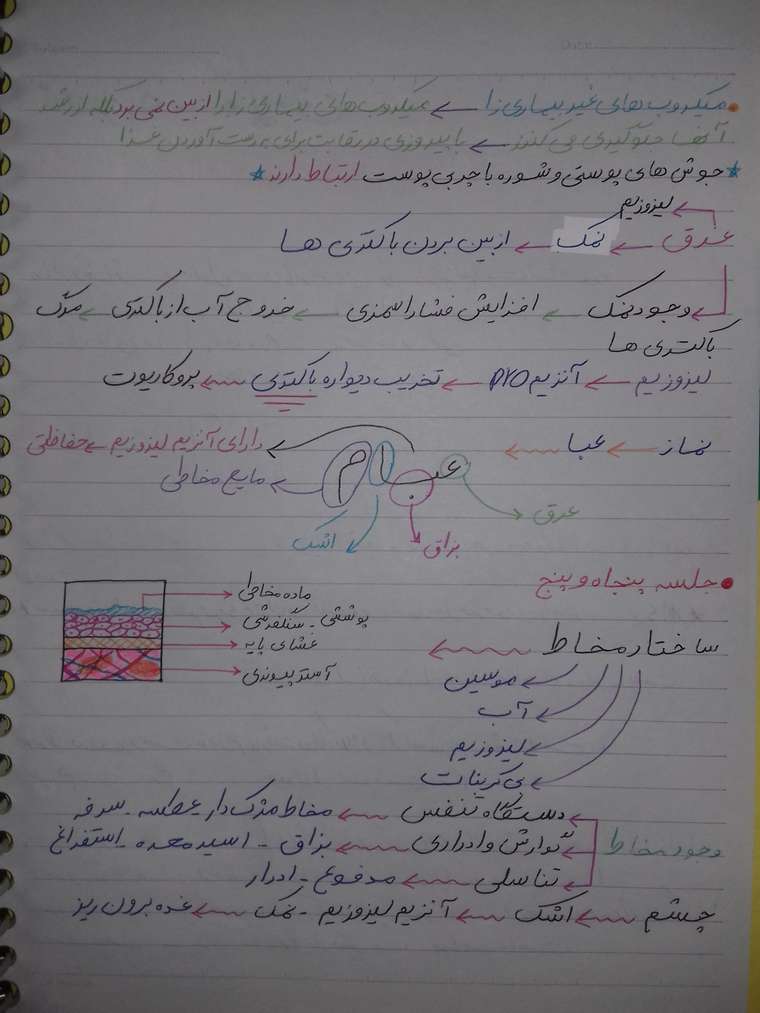 میکروب های غیر بیماری زا ← میکروب های بیماری زا را از بین نمی برد بلکه از رشد
آنها جلوگیری می کنند ← با پیروزی در رقابت برای به دست آوردن غذا
* جوش های پوستی و شوره با چربی پوست ارتباط دارند *
لیزوزیم
عرق ← نمک ← از بین بردن باکتری ها
وجود نمک ← افزایش فشار اسمزی ← خروج آب از باکتری ← مرگ
باکتری ها
لیزوزیم ← آنزیم pro ← تخریب دیواره باکتری ← پروکاریوت
نماز ← عبا ←
دارای آنزیم لیزوزیم ← حفاظتی
عبـ ا م
مایع مخاطی
عرق
بزاق
اشک
جلسه پنجاه و پنج
ماده مخاطی
پوششی - سنگفرشی
غشای پایه
آستر پیوندی
ساختار مخاط ←
موسین
آب
لیزوزیم
بی کربنات
وجود مخاط
دستگاه تنفس ← مخاط مژک دار - عطسه - سرفه
گوارش و ادراری ← بزاق - اسید معده - استفراغ
تناسلی ← مدفوع - ادرار
چشم ← اشک ← آنزیم لیزوزیم - نمک ← غده برون ریز